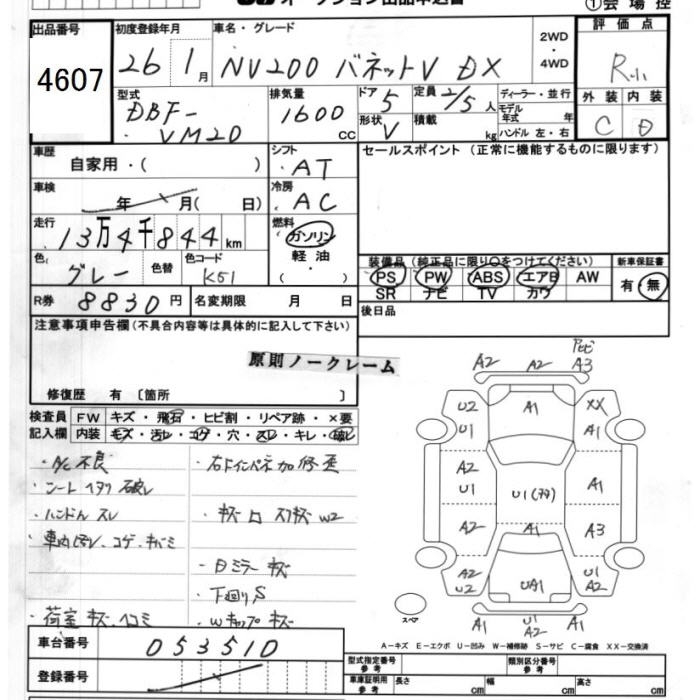 オークション出品申込書
①会場控
出品番号
4607
初度登録年月
26 1月
車名・グレード
NV200 バネットV DX
2WD
・
4WD
評価点
R
型式
DBF-
VM20
排気量
1600
CC
ドア
5
形状
V
定員
2/5人
積載
kg
ディーラー・並行
モデル
年式 年
ハンドル 左・右
外装 内装
C D
車歴
自家用・( )
シフト
AT
セールスポイント (正常に機能するものに限ります)
車検
年 月( 日)
冷房
AC
走行
13万4千844km
燃料
ガソリン
軽油
・
( )
色
グレー
色替
色コード
K51
装備品(純正品に限り○をつけてください)
新車保証書
PS PW ABS エアB AW
SR ナビ TV カワ
有・無
R券
8830円
名変期限 月 日
後日品
注意事項申告欄(不具合内容等は具体的に記入して下さい)
原則ノークレーム
修復歴 有 〔箇所 〕
検査員 FW キズ・飛石・ヒビ割・リペア跡・×要
記入欄 内装 キズ・汚レ・コゲ・穴・スレ・キレ・破レ
・A/C不良
・シート ヘタリ 破レ
・ハンドル スレ
・荷室 キズ、ヘコミ
・日ミラー キズ
・下廻りS
・Wキャップ キズ
A2 A2 A3
U2 A1 XX
U1 A1
A2 U1 A1
U1
A2 A1 A3
A2 U2 UA1 U1 A2
スペア
A1 U1 A2 A1
A-キズ E-エクボ U-凹み W-補修跡 S-サビ C-腐食 XX-交換済
車台番号
053510
登録番号
型式指定番号
参考
類別区分番号
参考
車庫証明用
参考
長さ cm 幅 cm 高さ cm